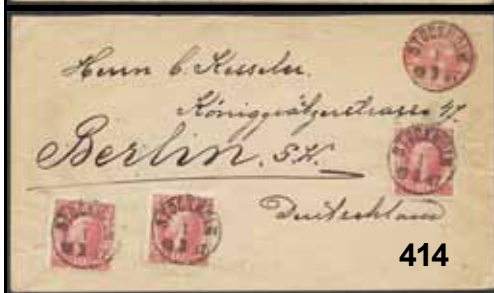 STOCKHOLM
Herrn C. Kesseler.
Königgrätzerstrasse 47
Berlin, S.W.
STOCKHOLM
Deutschland
STOCKHOLM
STOCKHOLM
414